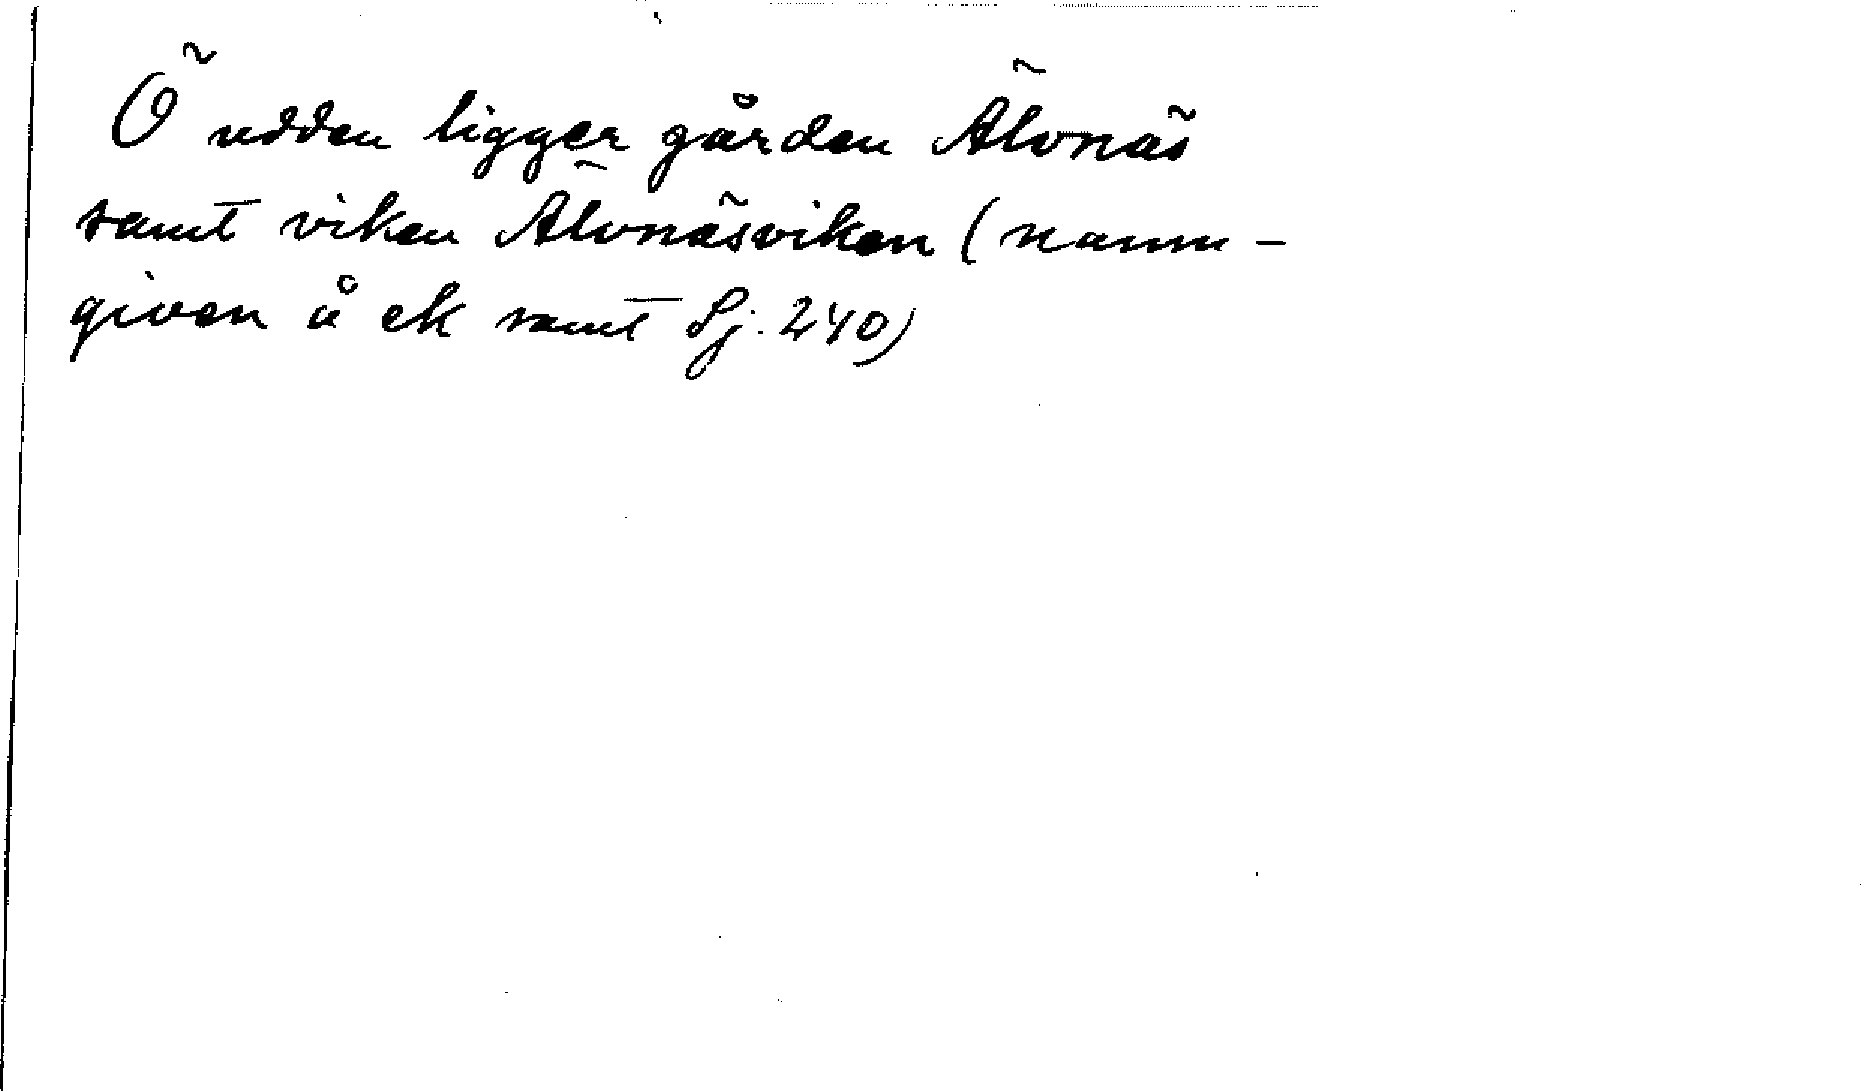 Ö udden ligger gården Älvnäs
samt viken Älvnäsviken (namn-
given å ek samt Sj. 240)